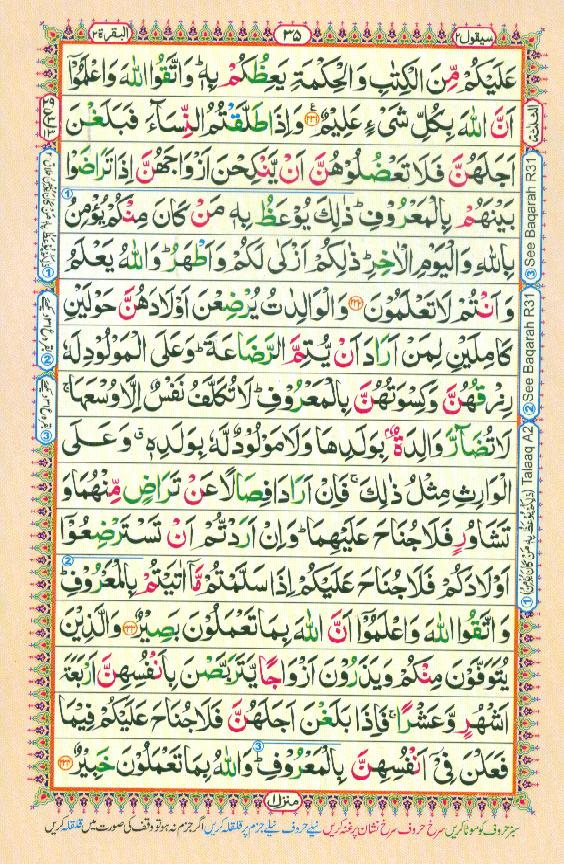 سيقول٢ ٣٥ البقرة٢
عَلَيْكُمْ مِّنَ الْكِتٰبِ وَالْحِكْمَةِ يَعِظُكُمْ بِهٖ ؕ وَاتَّقُوا اللّٰهَ وَاعْلَمُوْۤا
اَنَّ اللّٰهَ بِكُلِّ شَیْءٍ عَلِيْمٌ ﴿۲۳۱﴾ وَاِذَا طَلَّقْتُمُ النِّسَآءَ فَبَلَغْنَ
اَجَلَهُنَّ فَلَا تَعْضُلُوْهُنَّ اَنْ يَّنْكِحْنَ اَزْوَاجَهُنَّ اِذَا تَرَاضَوْا
بَيْنَهُمْ بِالْمَعْرُوْفِ ؕ ذٰلِكَ يُوْعَظُ بِهٖ مَنْ كَانَ مِنْكُمْ يُؤْمِنُ
بِاللّٰهِ وَالْيَوْمِ الْاٰخِرِ ؕ ذٰلِكُمْ اَزْكٰى لَكُمْ وَاَطْهَرُ ؕ وَاللّٰهُ يَعْلَمُ
وَاَنْتُمْ لَا تَعْلَمُوْنَ ﴿۲۳۲﴾ وَالْوَالِدٰتُ يُرْضِعْنَ اَوْلَادَهُنَّ حَوْلَيْنِ
كَامِلَيْنِ لِمَنْ اَرَادَ اَنْ يُّتِمَّ الرَّضَاعَةَ ؕ وَعَلَى الْمَوْلُوْدِ لَهٗ
رِزْقُهُنَّ وَكِسْوَتُهُنَّ بِالْمَعْرُوْفِ ؕ لَا تُكَلَّفُ نَفْسٌ اِلَّا وُسْعَهَا ۚ
لَا تُضَآرَّ وَالِدَةٌۢ بِوَلَدِهَا وَلَا مَوْلُوْدٌ لَّهٗ بِوَلَدِهٖ ۗ وَعَلَى
الْوَارِثِ مِثْلُ ذٰلِكَ ۚ فَاِنْ اَرَادَا فِصَالًا عَنْ تَرَاضٍ مِّنْهُمَا وَ
تَشَاوُرٍ فَلَا جُنَاحَ عَلَيْهِمَا ؕ وَاِنْ اَرَدْتُّمْ اَنْ تَسْتَرْضِعُوْۤا
اَوْلَادَكُمْ فَلَا جُنَاحَ عَلَيْكُمْ اِذَا سَلَّمْتُمْ مَّاۤ اٰتَيْتُمْ بِالْمَعْرُوْفِ ؕ
وَاتَّقُوا اللّٰهَ وَاعْلَمُوْۤا اَنَّ اللّٰهَ بِمَا تَعْمَلُوْنَ بَصِيْرٌ ﴿۲۳۳﴾ وَالَّذِيْنَ
يُتَوَفَّوْنَ مِنْكُمْ وَيَذَرُوْنَ اَزْوَاجًا يَّتَرَبَّصْنَ بِاَنْفُسِهِنَّ اَرْبَعَةَ
اَشْهُرٍ وَّعَشْرًا ۚ فَاِذَا بَلَغْنَ اَجَلَهُنَّ فَلَا جُنَاحَ عَلَيْكُمْ فِيْمَا
فَعَلْنَ فِیْۤ اَنْفُسِهِنَّ بِالْمَعْرُوْفِ ؕ وَاللّٰهُ بِمَا تَعْمَلُوْنَ خَبِيْرٌ ﴿۲۳۴﴾
③ See Baqarah R31
② See Baqarah R31
① Talaaq A2
منزل۱
سبز حروف کو موٹا کریں سرخ حروف سرخ نشان پر غنہ کریں نیلے حروف نیلے جزم پر قلقلہ کریں اگر جزم نہ ہو تو وقف کی صورت میں قلقلہ کریں